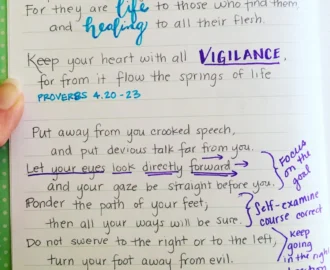 For they are life to those who find them,
and healing to all their flesh.
Keep your heart with all VIGILANCE,
for from it flow the springs of life
PROVERBS 4.20-23
Put away from you crooked speech,
and put devious talk far from you.
Let your eyes look directly forward
and your gaze be straight before you.
FOCUS
on the
goal
Ponder the path of your feet,
then all your ways will be sure.
Self-examine
course correct
Do not swerve to the right or to the left,
turn your foot away from evil.
keep
going
in the right